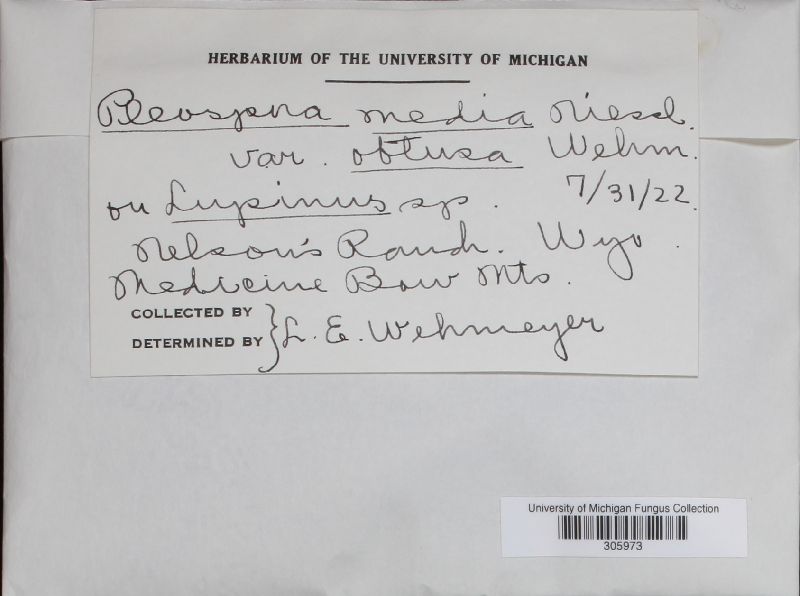 HERBARIUM OF THE UNIVERSITY OF MICHIGAN
Pleospora media Niessl.
var. obtusa Wehm.
on Lupinus sp. 7/31/22.
Nelson's Ranch. Wyo.
Medicine Bow Mts.
COLLECTED BY
DETERMINED BY } L. E. Wehmeyer
University of Michigan Fungus Collection
305973